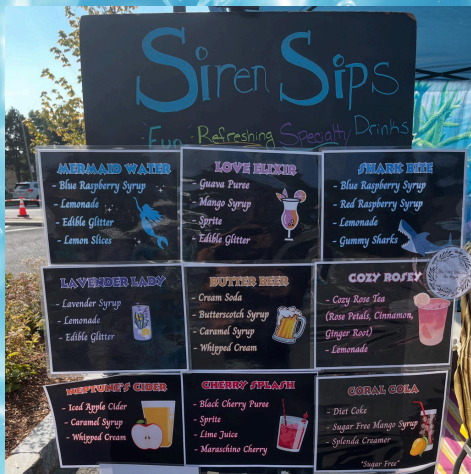 Siren Sips
Fun Refreshing Specialty Drinks
MERMAID WATER
- Blue Raspberry Syrup
- Lemonade
- Edible Glitter
- Lemon Slices
LOVE ELIXIR
- Guava Puree
- Mango Syrup
- Sprite
- Edible Glitter
SHARK BITE
- Blue Raspberry Syrup
- Red Raspberry Syrup
- Lemonade
- Gummy Sharks
LAVENDER LADY
- Lavender Syrup
- Lemonade
- Edible Glitter
BUTTER BEER
- Cream Soda
- Butterscotch Syrup
- Caramel Syrup
- Whipped Cream
COZY ROSEY
- Cozy Rose Tea
(Rose Petals, Cinnamon,
Ginger Root)
- Lemonade
NEPTUNE'S CIDER
- Iced Apple Cider
- Caramel Syrup
- Whipped Cream
CHERRY SPLASH
- Black Cherry Puree
- Sprite
- Lime Juice
- Maraschino Cherry
CORAL COLA
- Diet Coke
- Sugar Free Mango Syrup
- Splenda Creamer
*Sugar Free*